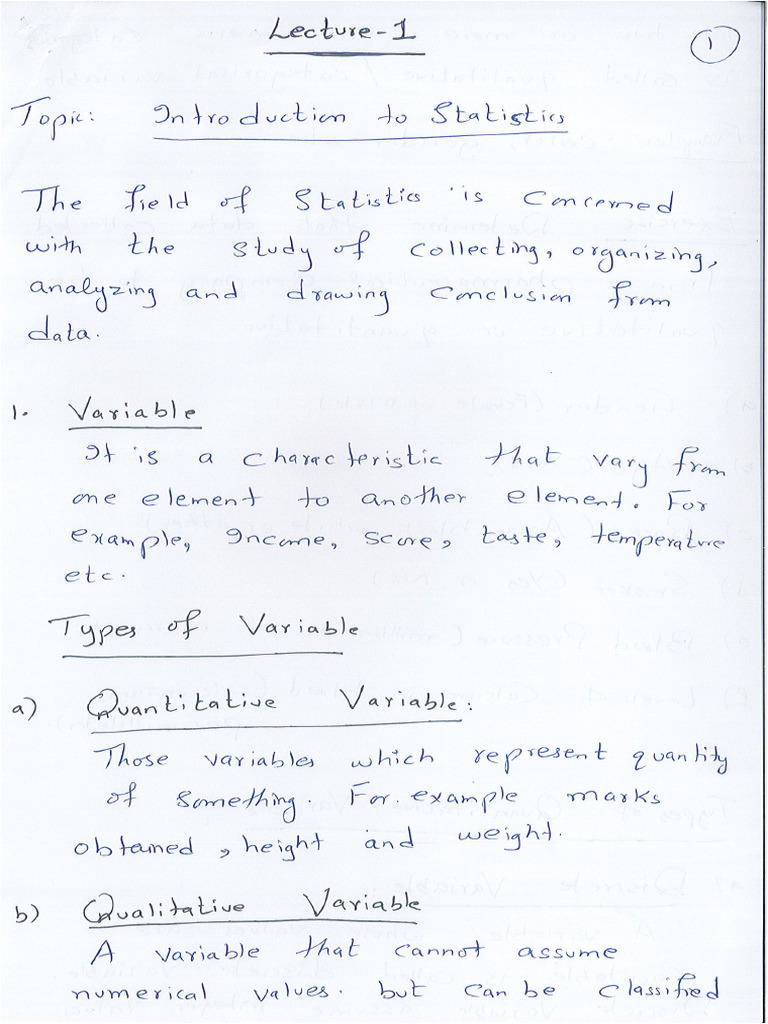 Lecture-1
1
Topic: Introduction to Statistics
The field of Statistics is concerned
with the study of collecting, organizing,
analyzing and drawing conclusion from
data.
1. Variable
It is a characteristic that vary from
one element to another element. For
example, Income, score, taste, temperature
etc.
Types of Variable
a) Quantitative Variable:
Those variables which represent quantity
of something. For example marks
obtained, height and weight.
b) Qualitative Variable
A variable that cannot assume
numerical values. but can be classified